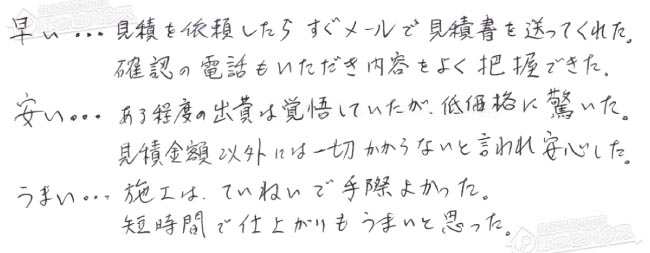 早い…見積を依頼したらすぐメールで見積書を送ってくれた。
確認の電話もいただき内容をよく把握できた.
安い…ある程度の出費は覚悟していたが、低価格に驚いた。
見積金額以外には一切かからないと言われ安心した。
うまい…施工は、ていねいで手際よかった。
短時間で仕上がりもうまいと思った。